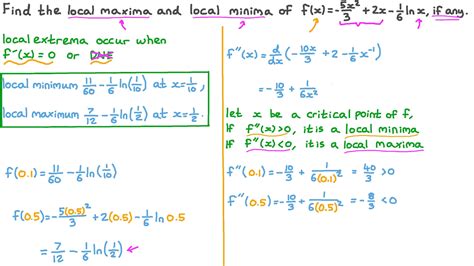 Find the local maxima and local minima of f(x)=-5x²/3+2x-1/6 ln x, if any.
local extrema occur when
f'(x)=0 or DNE
local minimum 11/60-1/6 ln(1/10) at x=1/10,
local maximum 7/12-1/6 ln(1/2) at x=1/2.
f(0.1)=11/60-1/6 ln(1/10)
f(0.5)=-5(0.5)²/3+2(0.5)-1/6 ln 0.5
=7/12-1/6 ln(1/2)
f''(x)=d/dx(-10x/3+2-1/6 x⁻¹)
=-10/3+1/6x²
let x be a critical point of f,
If f''(x)>0, it is a local minima
If f''(x)<0, it is a local maxima
f''(0.1)=-10/3+1/6(0.1)²=40/3>0
f''(0.5)=-10/3+1/6(0.5)²=-8/3<0